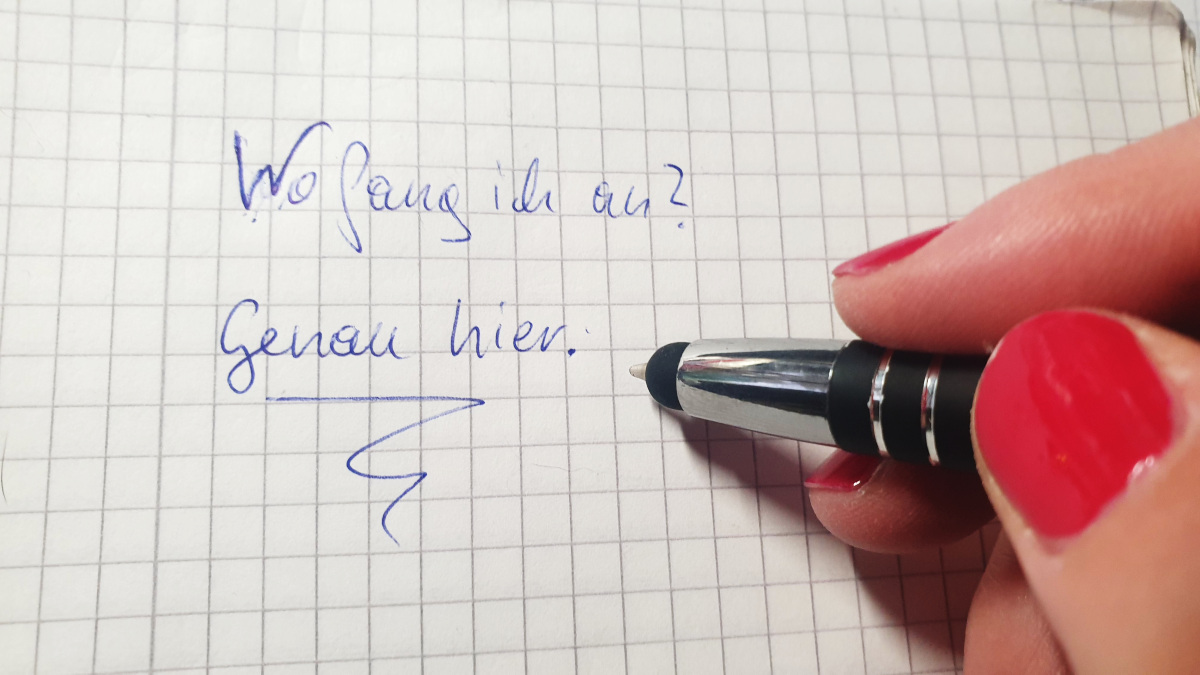 Wo fang ich an?
Genau hier.